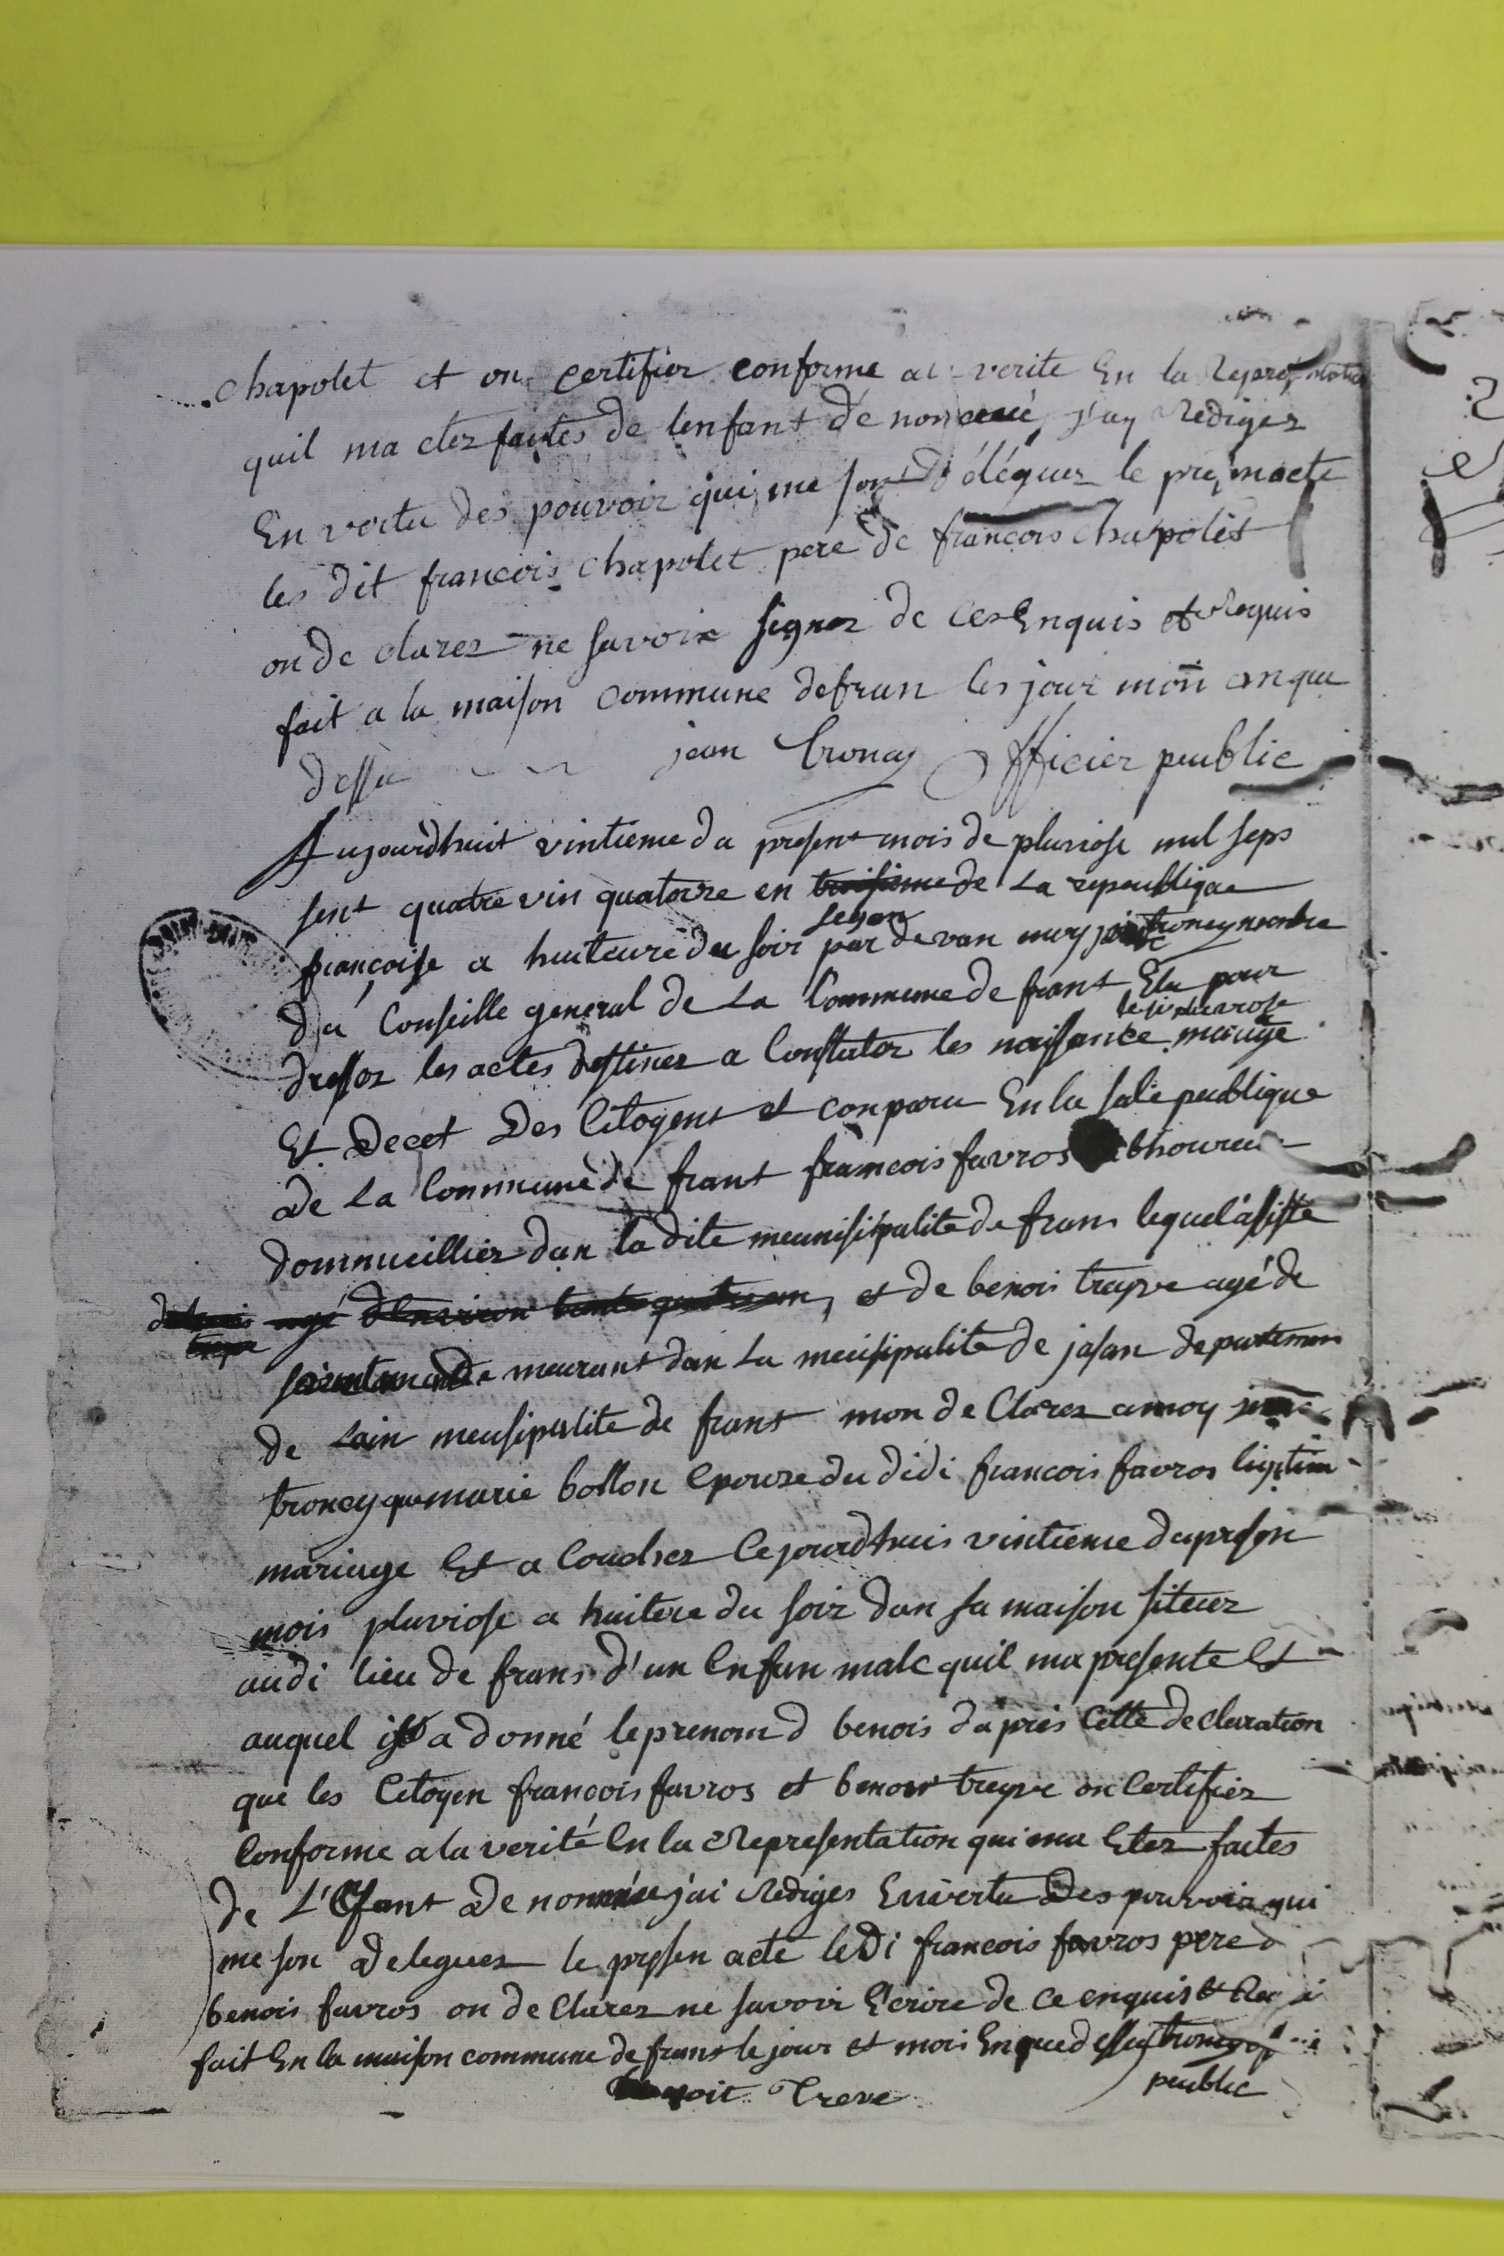 chapolet et on certifier conforme a verite En la
quil ma eter faites de lenfant dé nommé j'ay Rediger
En vertu des pouvoir qui me son déléguer le
les dit francois chapolet pere de francois chapolet
on de clarer ne savoir signer de ces Enquis et Requis
fait a la maison commune defran les jour mon an que
dessu jean troncy officier peublic
Aujourdhuit vintieme du present mois de pluviose mil seps
sent quatre vin quatorze en troisieme de La republique
segon
francoise a huiteure du soir par devan moy troncy membre
du Conseille general de La Commune de frans Elu pour
dresser les actes destiner a Constater les naissance mariage
Et Decet Des Citoyent et conparu En la sale peublique
de La Commune de frans francois favros
dommicillier dan la dite meunisipalite de frans lequel asiste
agé d'environ trante quatre an, et de benois trayve agé de
meurant dan La meusipalite de jasan departemen
de Lain meusipalite de frans mon de Clarer amoy
troncy que marie bollon Epouze du didi francois favros
mariage Et a Coucher Cejourdhuis vintieme du preson
mois pluviose a huitere du soir dan sa maison siteur
audi lieu de frans d'un Enfan male quil ma presente Et
auquel il a donné le prenom d benois dapres Cette declaration
que les Citoyen francois favros et benoit treyve on Certifier
Conforme a la verité En la Representation qui ma Eter faites
de L'Efant de nommée j'ai Rediges En vertu Des pouvoir qui
me son deleguer le pressen acte le Di francois favros pere d
benois favros on de Clarer ne savoir Ecrire de ce enquis et
fait En la maison commune de frans le jour et mois En que dessu troncy
peublic
Treve